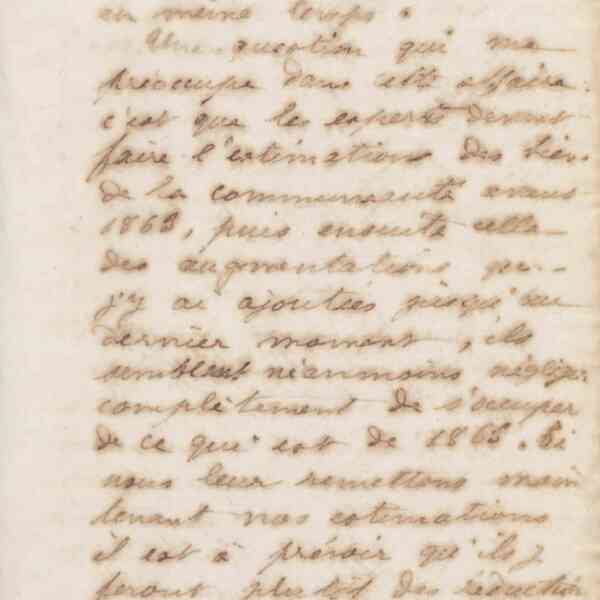 en même temps.
Une question qui me
préoccupe dans cette affaire,
c'est que les experts devant
faire l'estimations des biens
de la communauté avant
1863, puis ensuite celle
des augmentations que
j'y ai ajoutées jusqu'au
dernier moment, ils
semblent néanmoins négliger
complètement de s'occuper
de ce qui est de 1863. Si
nous leur remettons main
tenant nos estimations
il est à prévoir qu'ils y
feront plutôt des réduction